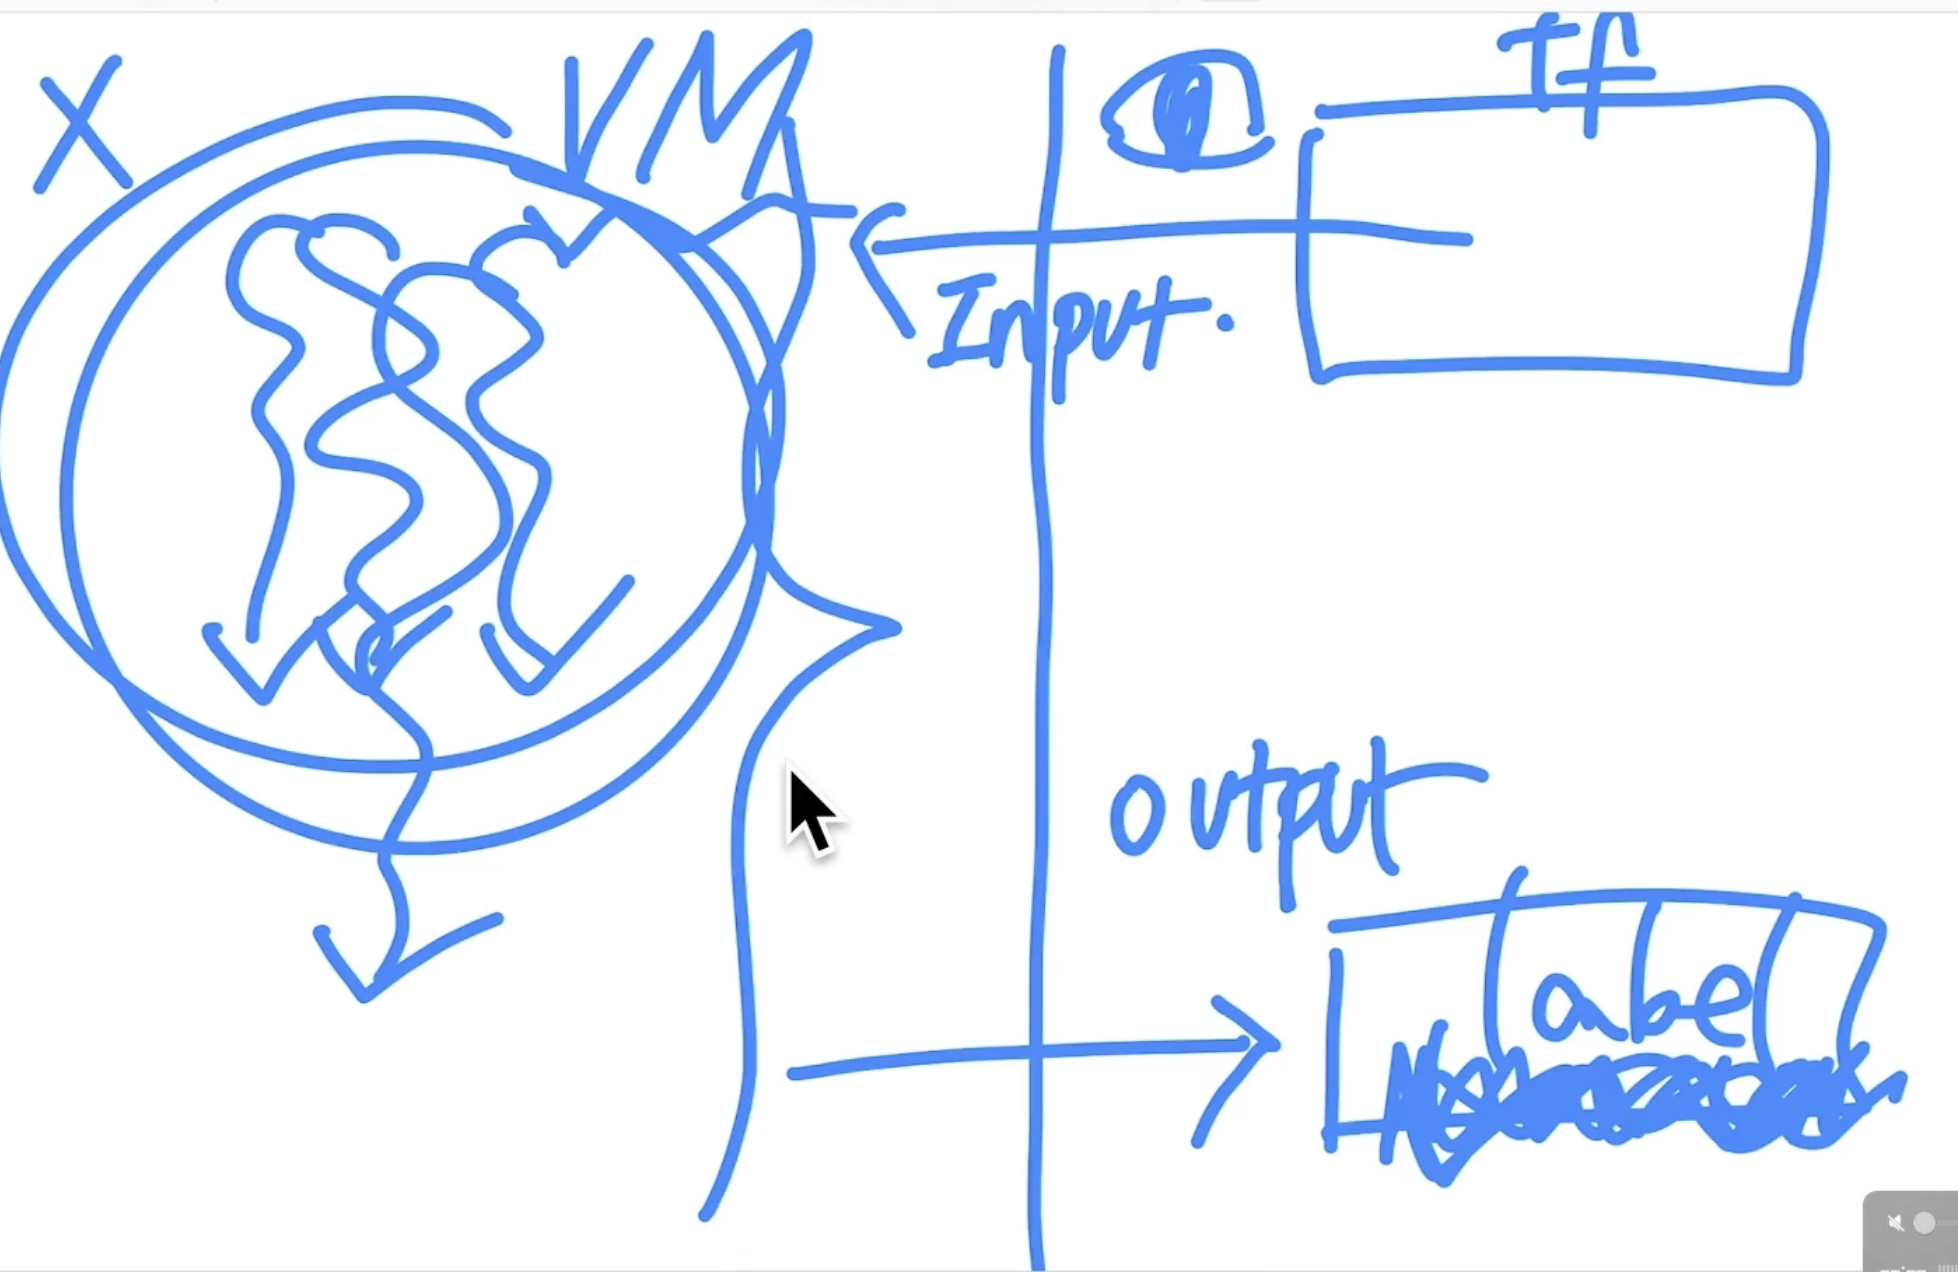 X
VM
Tf
Input.
output
label